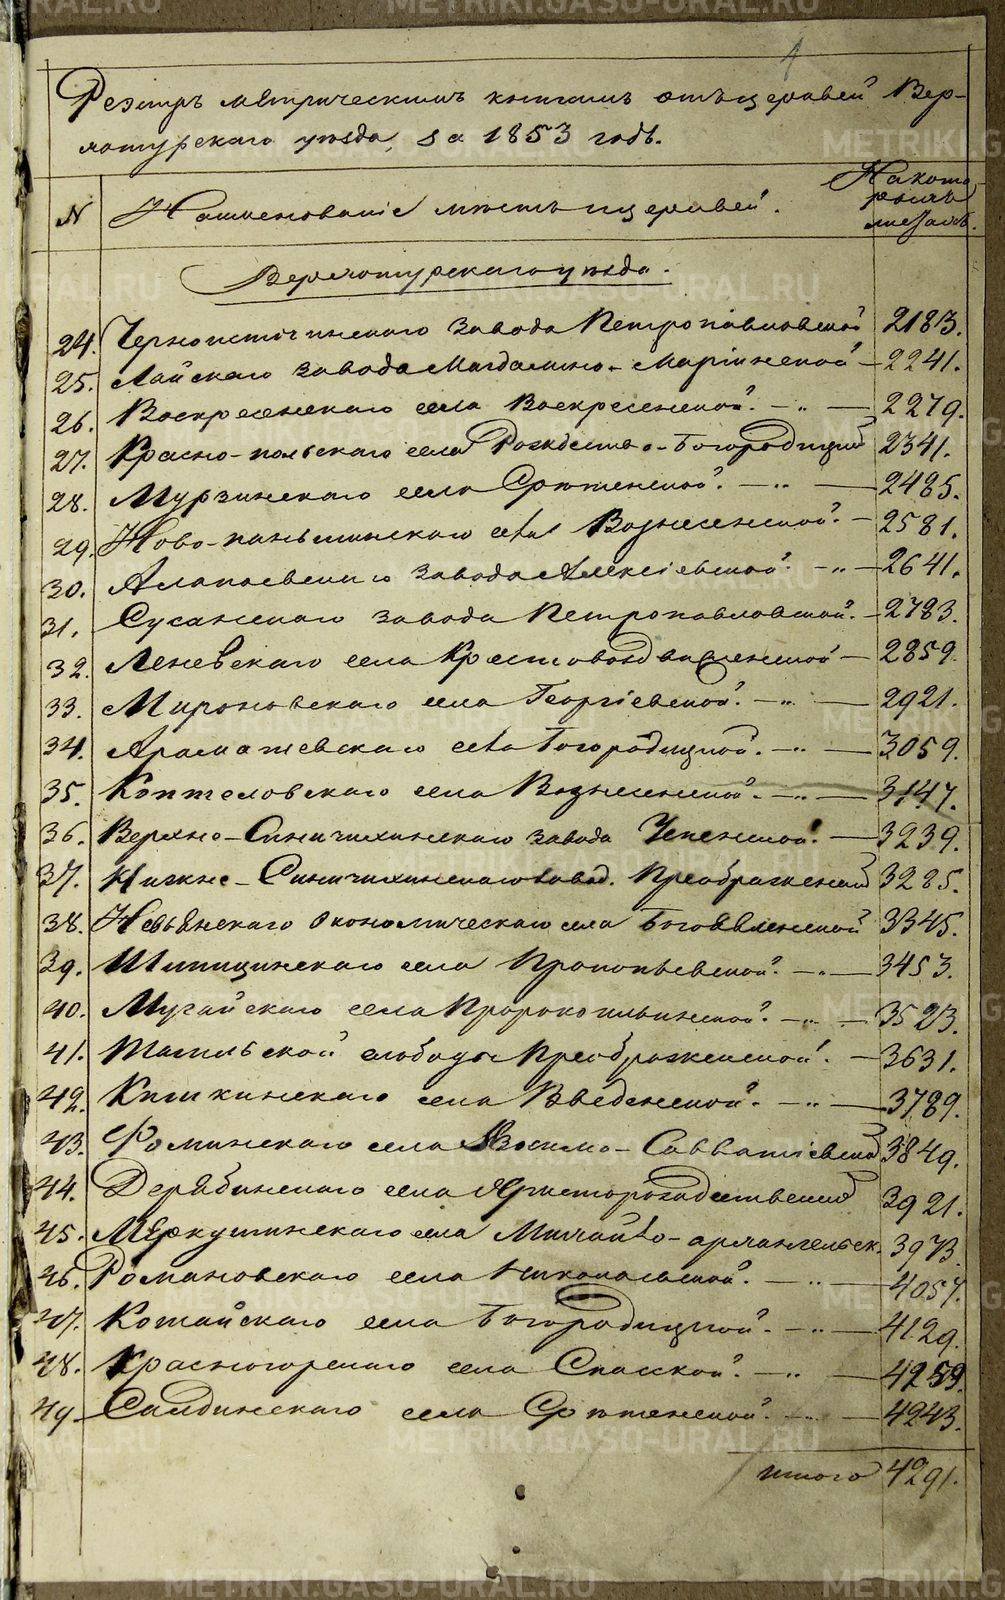 1
Реэстръ метрическимъ книгамъ отъ церквей Вер-
хотурскаго уѣзда, за 1853 годъ.
N Наименованіе мѣстъ и церквей. На кото-
рыхъ
листахъ.
Верхотурскаго уѣзда.
24. Черноисточинскаго завода Петропавловской 2183.
25. Лайскаго завода Магдалино-Маріинской — 2241.
26. Воскресенскаго села Воскресенской. — „ — 2279.
27. Красно-польскаго села Рождество-Богородицкой 2341.
28. Мурзинскаго села Срѣтенской. — „ — 2485.
29. Ново-паньшинскаго села Вознесенской. — 2581.
30. Алапаевскаго завода Алексіевской. — „ — 2641.
31. Сусанскаго завода Петропавловской. — 2783.
32. Леневскаго села Крестовоздвиженской — 2859.
33. Мироновскаго села Георгіевской. — „ — 2921.
34. Арамашевскаго села Богородицкой. — „ — 3059.
35. Коптеловскаго села Вознесенской. — „ — 3147.
36. Верхно-Синячихинскаго завода Успенской. — 3239.
37. Нижне-Синячихинскаго завод. Преображенской 3285.
38. Невьянскаго экономическаго села Богоявленской 3345.
39. Шипицинскаго села Прокопьевской. — „ — 3453.
40. Мугайскаго села Пророкоильинской. — „ — 3523.
41. Тагильской слободы Преображенской. — 3631.
42. Кишкинскаго села Введенской. — „ — 3789.
43. Фоминскаго села Зосимо-Савватіевской 3849.
44. Дерябинскаго села Христорождественской 3921.
45. Меркушинскаго села Михаило-архангельск. 3973.
46. Романовскаго села Никольской. — „ — 4057.
47. Котайскаго села Богородицкой. — „ — 4129.
48. Красногорскаго села Спасской. — „ — 4259.
49. Салдинскаго села Срѣтенской. — „ — 4243.
итого 4291.
METRIKI.GASO-URAL.RU